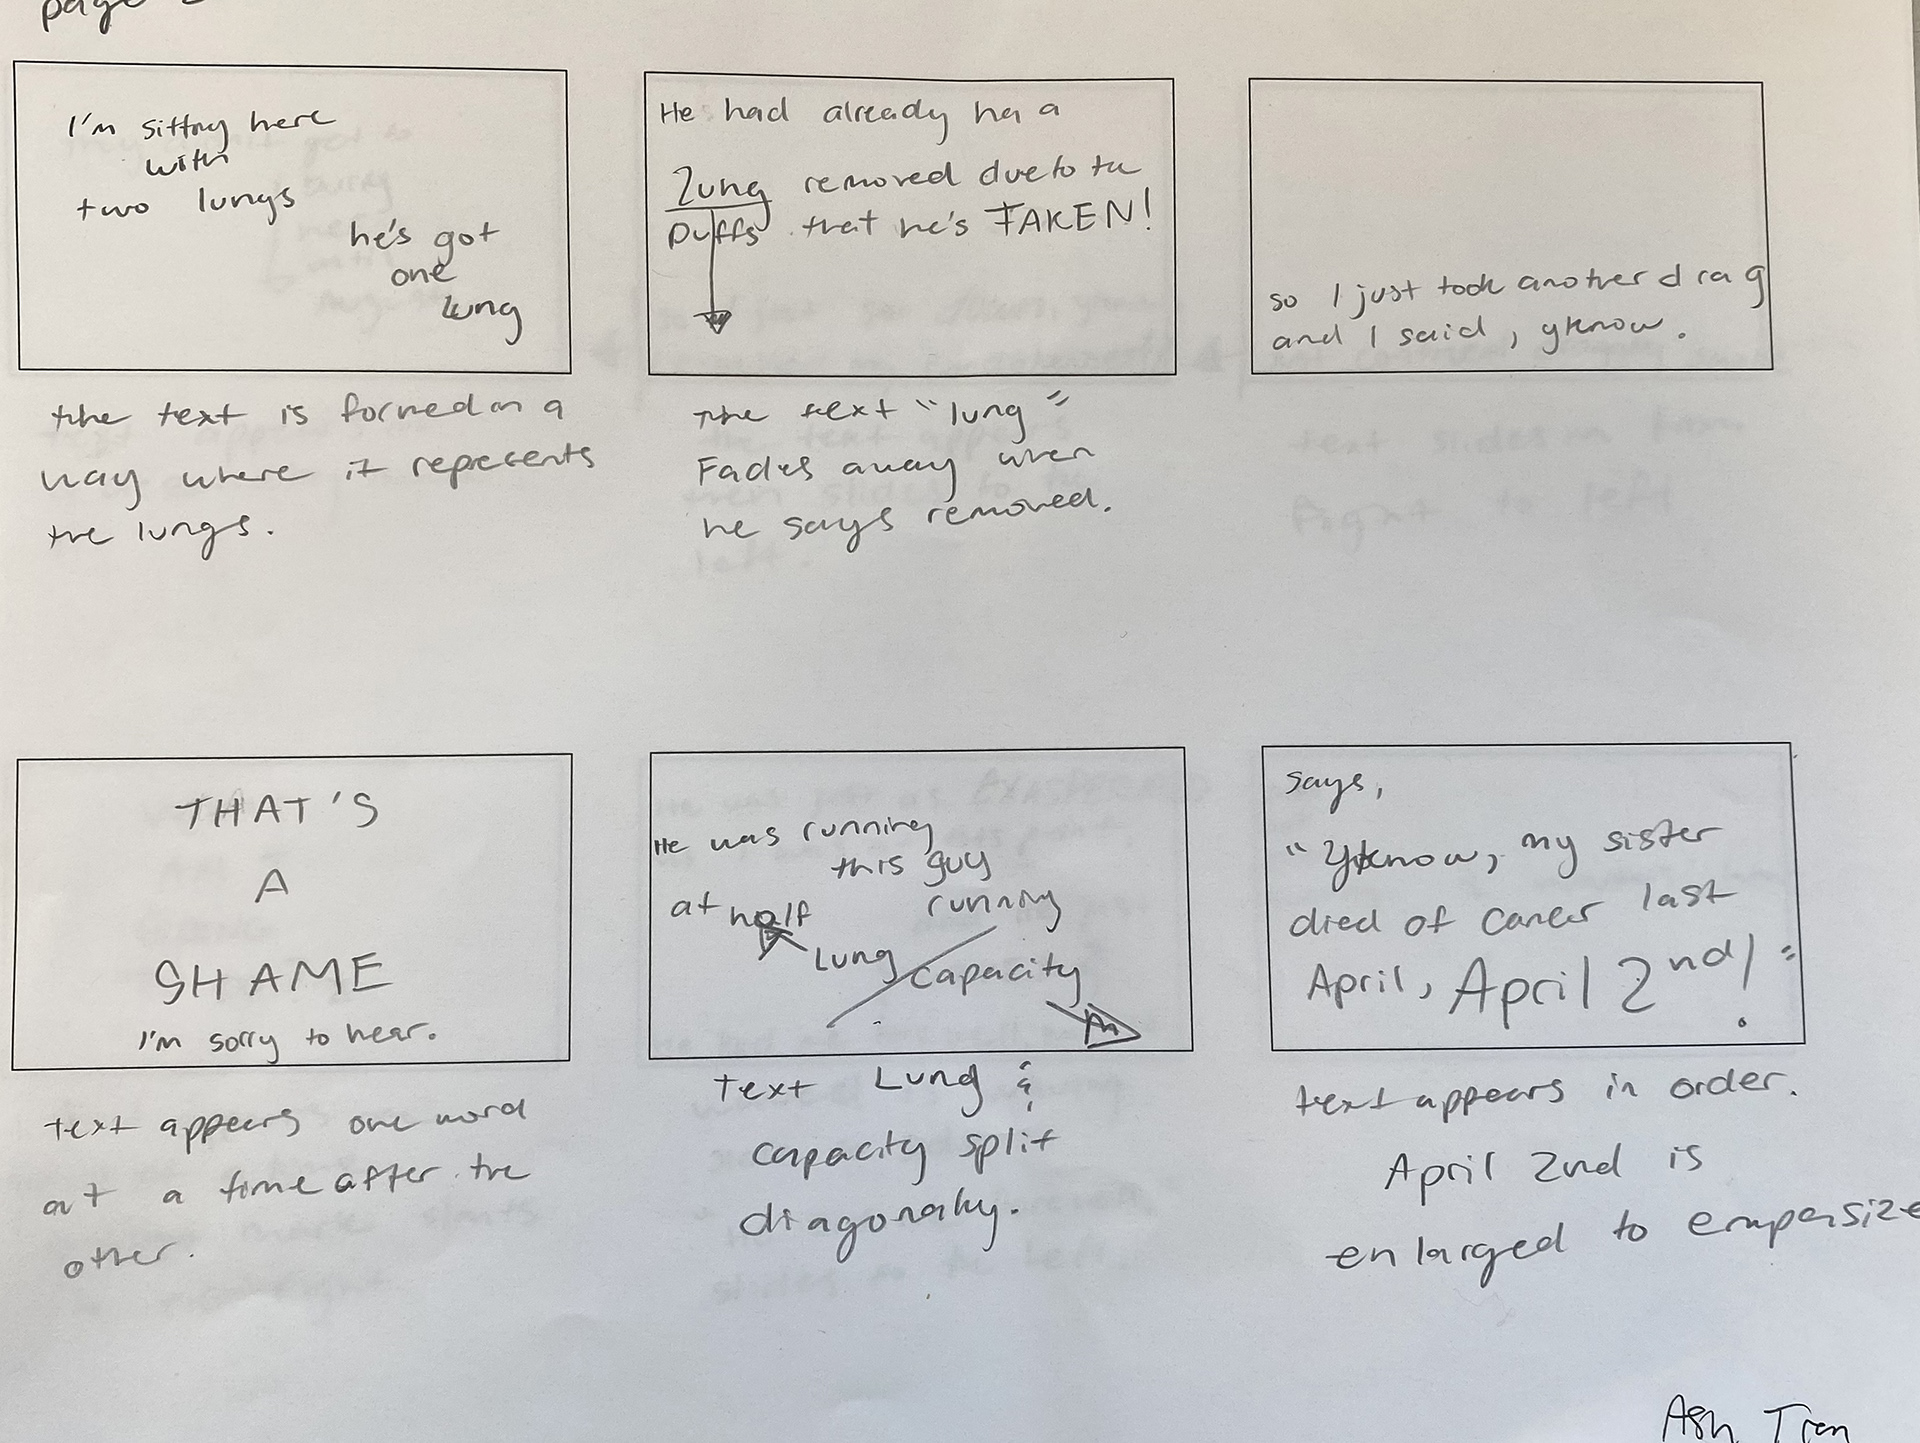 page 2
I'm sitting here
with
two lungs
he's got
one
lung
He had already had a
Lung removed due to the
puffs that he's TAKEN!
so I just took another drag
and I said, yknow.
the text is formed in a
way where it represents
the lungs.
The text "lung"
Fades away when
he says removed.
THAT'S
A
SHAME
I'm sorry to hear.
He was running
this guy
at half
running
Lung
capacity
says,
"Yknow, my sister
died of cancer last
April, April 2nd!"
text appears one word
at a time after the
other.
text Lung &
capacity split
diagonaly.
text appears in order.
April 2nd is
enlarged to empasize
Ash Tran